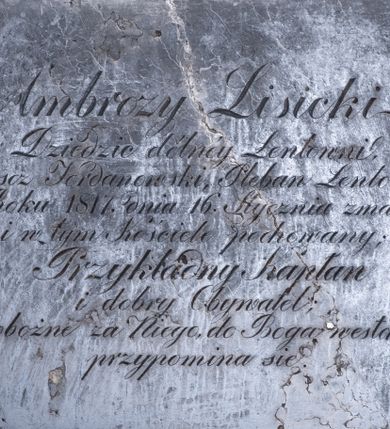 Ambrozy Lisicki
Dziedzic dolney Lentowni,
Jordanowski, Pleban
roku 1817. dnia 16. Stycznia
i w tym Kościele pochowany.
Przykładny Kapłan
i dobry Obywatel;
za Niego, do Boga
przypomina się